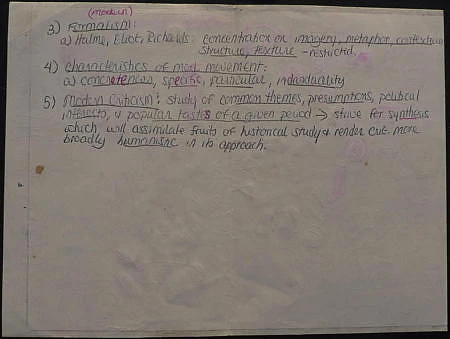 (modern)
3) Formalism:
a) Hulme, Eliot, Richards: concentration on imagery, metaphor, contextual
structure, texture - restricted.
4) characteristics of mod. movement:
a) concreteness, specific, particular, individuality
5) Modern Criticism: study of common themes, presumptions, political
interests, & popular tastes of a given period → strive for synthesis
which will assimilate fruits of historical study & render crit. more
broadly humanistic in its approach.